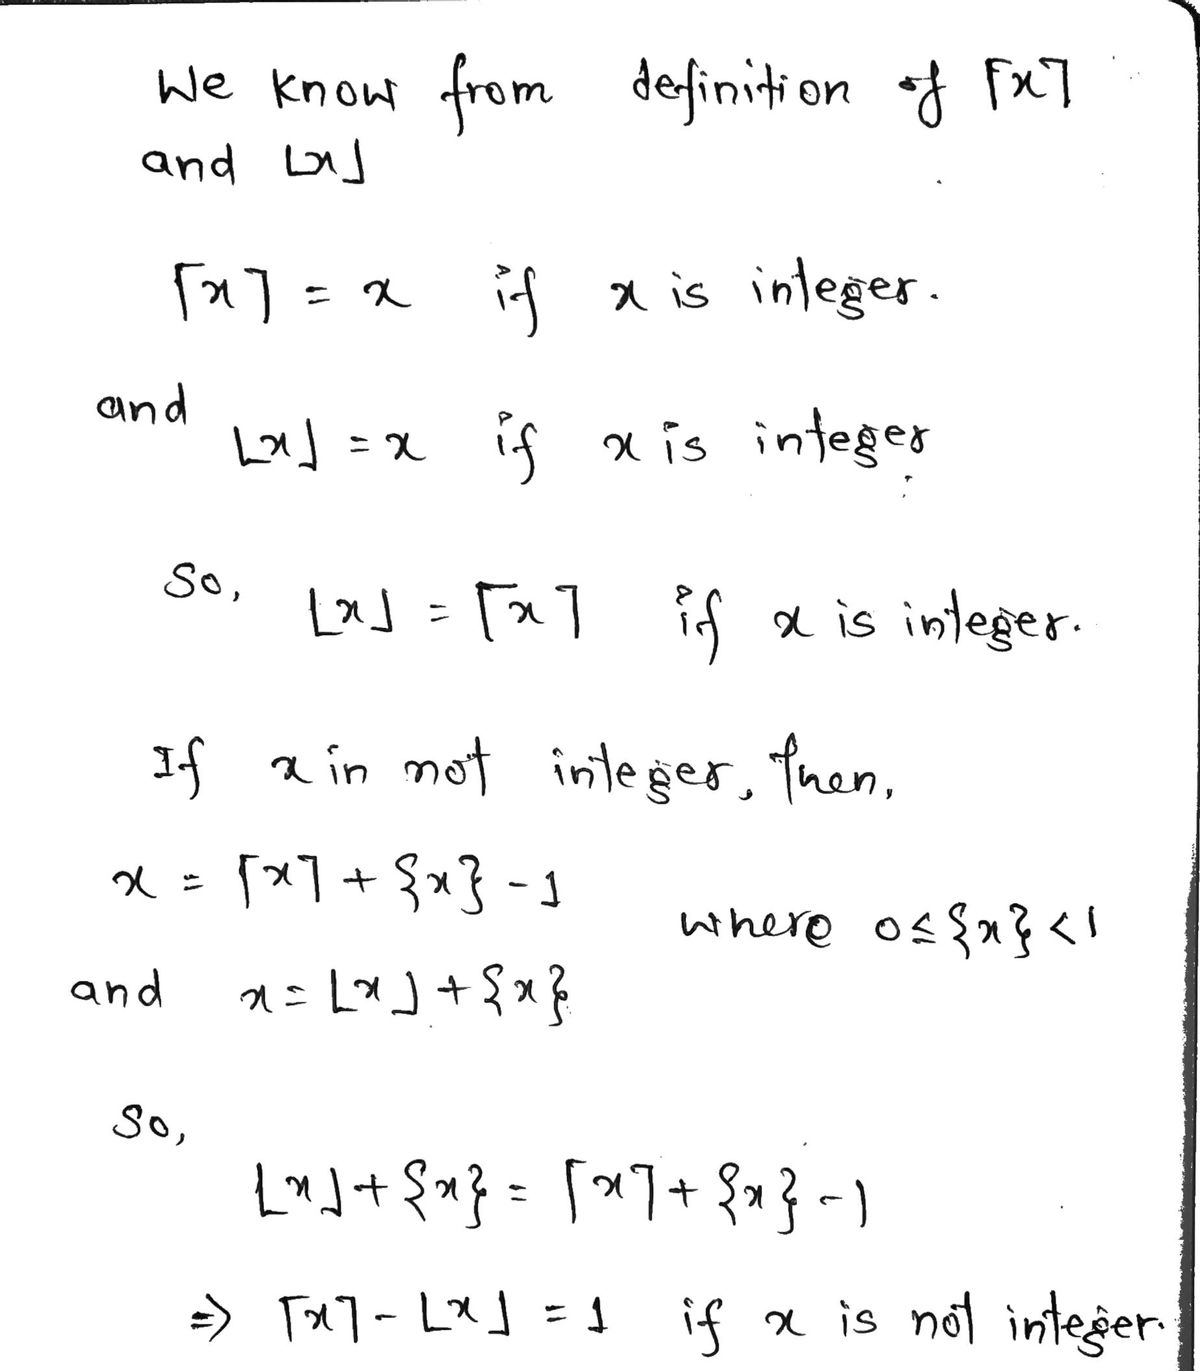 We know from definition of ⌈x⌉
and ⌊x⌋
⌈x⌉ = x if x is integer.
and
⌊x⌋ = x if x is integer
So, ⌊x⌋ = ⌈x⌉ if x is integer.
If x in not integer, then,
x = ⌈x⌉ + {x} - 1
where 0 ≤ {x} < 1
and x = ⌊x⌋ + {x}
So,
⌊x⌋ + {x} = ⌈x⌉ + {x} - 1
⇒ ⌈x⌉ - ⌊x⌋ = 1 if x is not integer.